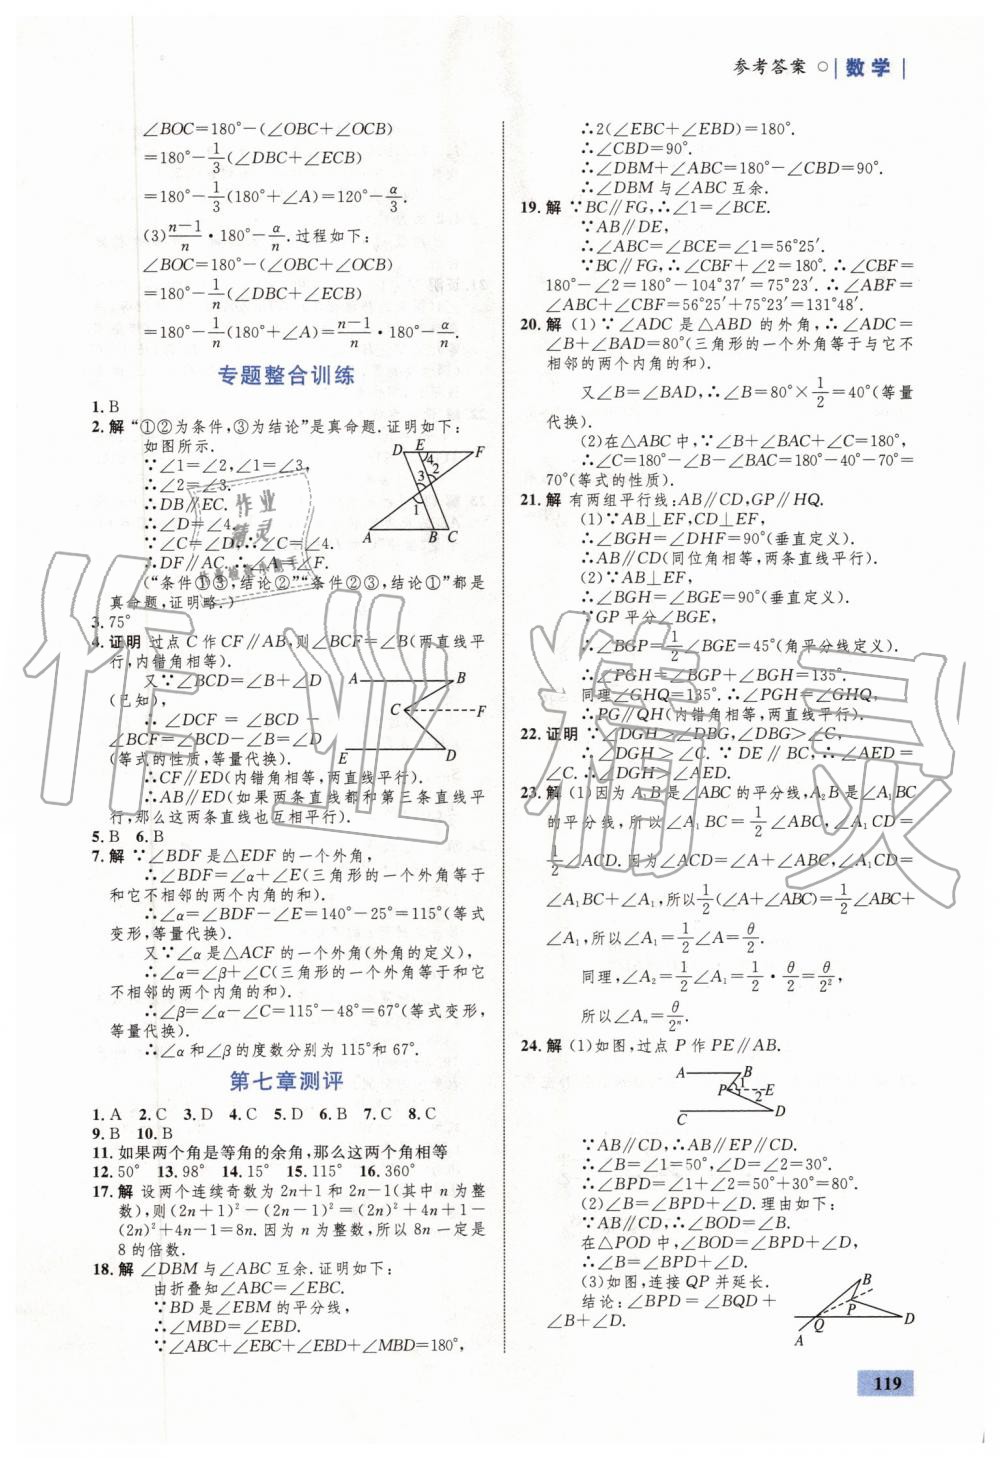 参考答案 ○ | 数学 |
∠BOC=180°-(∠OBC+∠OCB)
=180°-1/3(∠DBC+∠ECB)
=180°-1/3(180°+∠A)=120°-α/3.
(3)(n-1)/n·180°-α/n.过程如下:
∠BOC=180°-(∠OBC+∠OCB)
=180°-1/n(∠DBC+∠ECB)
=180°-1/n(180°+∠A)=(n-1)/n·180°-α/n.
专题整合训练
1. B
2. 解 “①②为条件,③为结论”是真命题.证明如下:
如图所示.
∵∠1=∠2,∠1=∠3,
∴∠2=∠3.
∴DB∥EC.
∴∠D=∠4.
∵∠C=∠D,∴∠C=∠4.
∴DF∥AC.∴∠A=∠F.
(“条件①③,结论②”“条件②③,结论①”都是
真命题,证明略.)
D E F
4
3 2
1
A B C
3. 75°
4. 证明 过点C作CF∥AB,则∠BCF=∠B(两直线平
行,内错角相等).
又∵∠BCD=∠B+∠D
(已知),
∴∠DCF=∠BCD-
∠BCF=∠BCD-∠B=∠D
(等式的性质,等量代换).
∴CF∥ED(内错角相等,两直线平行).
∴AB∥ED(如果两条直线都和第三条直线平
行,那么这两条直线也互相平行).
A B
C F
E D
5. B 6. B
7. 解 ∵∠BDF是△EDF的一个外角,
∴∠BDF=∠α+∠E(三角形的一个外角等于
和它不相邻的两个内角的和).
∴∠α=∠BDF-∠E=140°-25°=115°(等式
变形,等量代换).
又∵∠α是△ACF的一个外角(外角的定义),
∴∠α=∠β+∠C(三角形的一个外角等于和它
不相邻的两个内角的和).
∴∠β=∠α-∠C=115°-48°=67°(等式变形,
等量代换).
∴∠α和∠β的度数分别为115°和67°.
第七章测评
1. A 2. C 3. D 4. C 5. D 6. B 7. C 8. C
9. B 10. B
11. 如果两个角是等角的余角,那么这两个角相等
12. 50° 13. 98° 14. 15° 15. 115° 16. 360°
17. 解 设两个连续奇数为2n+1和2n-1(其中n为整
数),则(2n+1)²-(2n-1)²=(2n)²+4n+1-
(2n)²+4n-1=8n.因为n为整数,所以8n一定是
8的倍数.
18. 解 ∠DBM与∠ABC互余.证明如下:
由折叠知∠ABC=∠EBC.
∵BD是∠EBM的平分线,
∴∠MBD=∠EBD.
∵∠ABC+∠EBC+∠EBD+∠MBD=180°,
∴2(∠EBC+∠EBD)=180°.
∴∠CBD=90°.
∴∠DBM+∠ABC=180°-∠CBD=90°.
∴∠DBM与∠ABC互余.
19. 解 ∵BC∥FG,∴∠1=∠BCE.
∵AB∥DE,
∴∠ABC=∠BCE=∠1=56°25′.
∵BC∥FG,∴∠CBF+∠2=180°.∴∠CBF=
180°-∠2=180°-104°37′=75°23′.∴∠ABF=
∠ABC+∠CBF=56°25′+75°23′=131°48′.
20. 解 (1)∵∠ADC是△ABD的外角,∴∠ADC=
∠B+∠BAD=80°(三角形的一个外角等于与它不
相邻的两个内角的和).
又∠B=∠BAD,∴∠B=80°×1/2=40°(等量
代换).
(2)在△ABC中,∵∠B+∠BAC+∠C=180°,
∴∠C=180°-∠B-∠BAC=180°-40°-70°=
70°(等式的性质).
21. 解 有两组平行线:AB∥CD,GP∥HQ.
(1)∵AB⊥EF,CD⊥EF,
∴∠BGH=∠DHF=90°(垂直定义).
∴AB∥CD(同位角相等,两条直线平行).
(2)∵AB⊥EF,
∴∠BGH=∠BGE=90°(垂直定义).
∵GP平分∠BGE,
∴∠BGP=1/2∠BGE=45°(角平分线定义).
∴∠PGH=∠BGP+∠BGH=135°.
同理∠GHQ=135°.∴∠PGH=∠GHQ.
∴PG∥QH(内错角相等,两直线平行).
22. 证明 ∵∠DGH>∠DBG,∠DBG>∠C,
∴∠DGH>∠C.∵DE∥BC,∴∠AED=
∠C.∴∠DGH>∠AED.
23. 解 (1)因为A₁B是∠ABC的平分线,A₂B是∠A₁BC
的平分线,所以∠A₁BC=1/2∠ABC,∠A₁CD=
1/2∠ACD.因为∠ACD=∠A+∠ABC,∠A₁CD=
∠A₁BC+∠A₁,所以1/2(∠A+∠ABC)=1/2∠ABC+
∠A₁,所以∠A₁=1/2∠A=θ/2.
同理,∠A₂=1/2∠A₁=1/2·θ/2=θ/2²,
所以∠Aₙ=θ/2ⁿ.
24. 解 (1)如图,过点P作PE∥AB.
A B
P 1 E
2
C D
∵AB∥CD,∴AB∥EP∥CD.
∴∠B=∠1=50°,∠D=∠2=30°.
∴∠BPD=∠1+∠2=50°+30°=80°.
(2)∠B=∠BPD+∠D.理由如下:
∵AB∥CD,∴∠BOD=∠B.
在△POD中,∠BOD=∠BPD+∠D,
∴∠B=∠BPD+∠D.
(3)如图,连接QP并延长.
结论:∠BPD=∠BQD+
∠B+∠D.
B
P
Q D
A
119
作业精灵